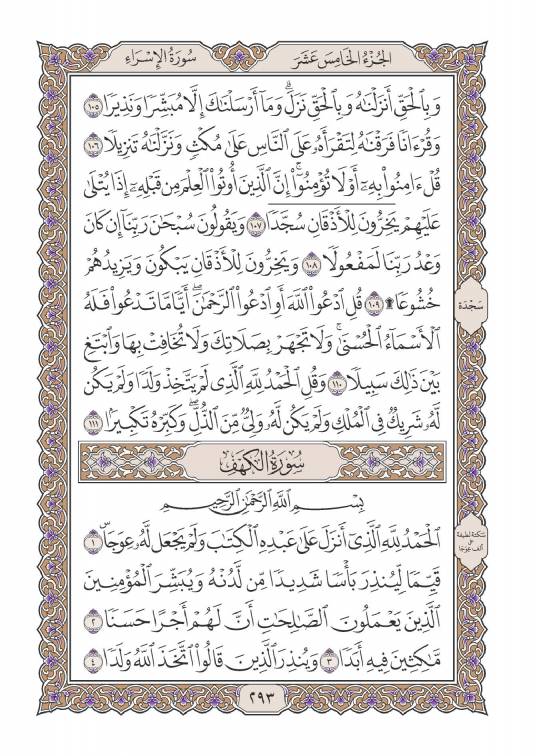 الجُزْءُ الخَامِسَ عَشَرَ
سُورَةُ الإِسْرَاءِ
وَبِٱلْحَقِّ أَنزَلْنَٰهُ وَبِٱلْحَقِّ نَزَلَۗ وَمَآ أَرْسَلْنَٰكَ إِلَّا مُبَشِّرًا وَنَذِيرًا ١٠٥
وَقُرْءَانًا فَرَقْنَٰهُ لِتَقْرَأَهُۥ عَلَى ٱلنَّاسِ عَلَىٰ مُكْثٍ وَنَزَّلْنَٰهُ تَنزِيلًا ١٠٦
قُلْ ءَامِنُوا۟ بِهِۦٓ أَوْ لَا تُؤْمِنُوٓا۟ۚ إِنَّ ٱلَّذِينَ أُوتُوا۟ ٱلْعِلْمَ مِن قَبْلِهِۦٓ إِذَا يُتْلَىٰ
عَلَيْهِمْ يَخِرُّونَ لِلْأَذْقَانِ سُجَّدًا ١٠٧ وَيَقُولُونَ سُبْحَٰنَ رَبِّنَآ إِن كَانَ
وَعْدُ رَبِّنَا لَمَفْعُولًا ١٠٨ وَيَخِرُّونَ لِلْأَذْقَانِ يَبْكُونَ وَيَزِيدُهُمْ
خُشُوعًا ۩ ١٠٩ قُلِ ٱدْعُوا۟ ٱللَّهَ أَوِ ٱدْعُوا۟ ٱلرَّحْمَٰنَۖ أَيًّا مَّا تَدْعُوا۟ فَلَهُ
سَجْدَة
ٱلْأَسْمَآءُ ٱلْحُسْنَىٰۚ وَلَا تَجْهَرْ بِصَلَاتِكَ وَلَا تُخَافِتْ بِهَا وَٱبْتَغِ
بَيْنَ ذَٰلِكَ سَبِيلًا ١١٠ وَقُلِ ٱلْحَمْدُ لِلَّهِ ٱلَّذِى لَمْ يَتَّخِذْ وَلَدًا وَلَمْ يَكُن
لَّهُۥ شَرِيكٌ فِى ٱلْمُلْكِ وَلَمْ يَكُن لَّهُۥ وَلِىٌّ مِّنَ ٱلذُّلِّۖ وَكَبِّرْهُ تَكْبِيرًۢا ١١١
سُورَةُ الكَهْفِ
بِسْمِ ٱللَّهِ ٱلرَّحْمَٰنِ ٱلرَّحِيمِ
ٱلْحَمْدُ لِلَّهِ ٱلَّذِىٓ أَنزَلَ عَلَىٰ عَبْدِهِ ٱلْكِتَٰبَ وَلَمْ يَجْعَل لَّهُۥ عِوَجَاۜ ١
سكتة لطيفة
على
ألف عوجا
قَيِّمًا لِّيُنذِرَ بَأْسًا شَدِيدًا مِّن لَّدُنْهُ وَيُبَشِّرَ ٱلْمُؤْمِنِينَ
ٱلَّذِينَ يَعْمَلُونَ ٱلصَّٰلِحَٰتِ أَنَّ لَهُمْ أَجْرًا حَسَنًا ٢
مَّٰكِثِينَ فِيهِ أَبَدًا ٣ وَيُنذِرَ ٱلَّذِينَ قَالُوا۟ ٱتَّخَذَ ٱللَّهُ وَلَدًا ٤
٢٩٣